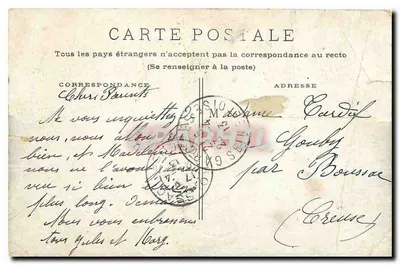 CARTE POSTALE
Tous les pays étrangers n'acceptent pas la correspondance au recto
(Se renseigner à la poste)
CORRESPONDANCE
ADRESSE
Chers Parents
Ne vous inquiettez
nous, nous
bien, et Madeleine
nous ne l'avons jamais
vu si bien
plus long.
Nous vous embrassons
tous Jules et Marg.
Madame Tardif
Gouby
par Boussac
Creuse